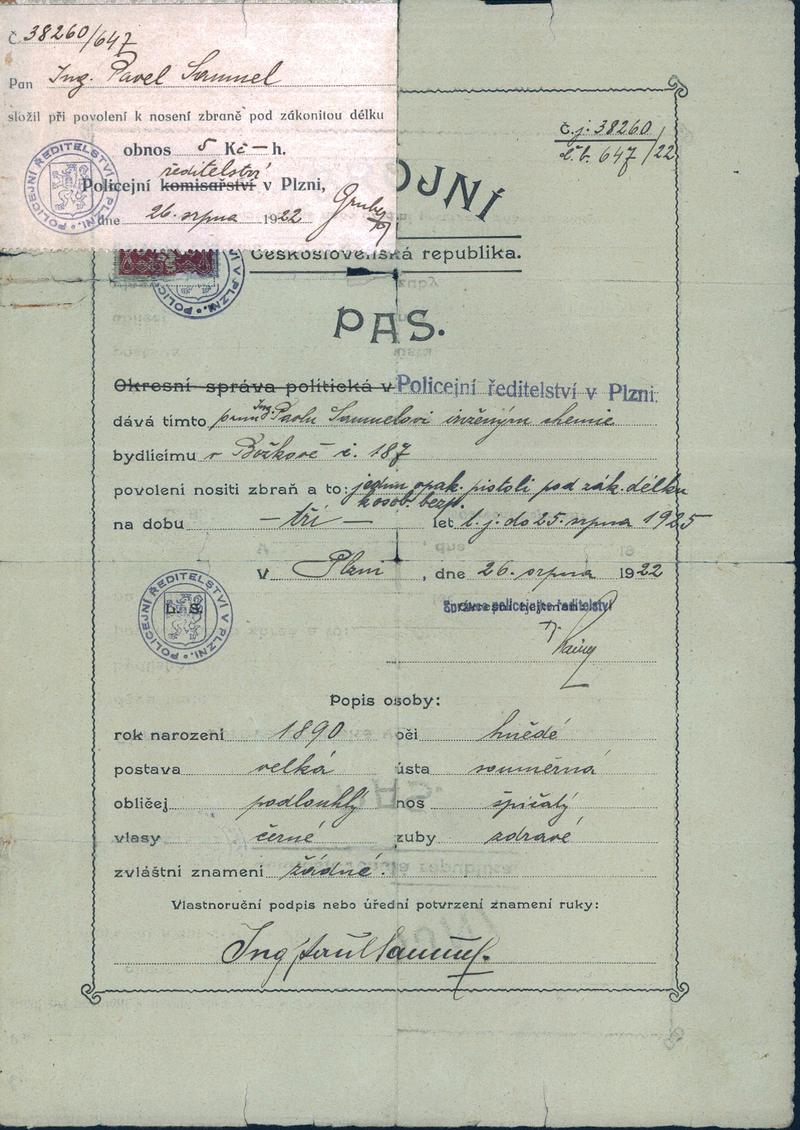 Č. 38260/647
Pan Ing. Pavel Samuel
složil při povolení k nosení zbraně pod zákonitou délku
obnos 5 Kč — h.
ředitelství
Policejní komisařství v Plzni,
dne 26. srpna 1922
POLICEJNÍ ŘEDITELSTVÍ V PLZNI.
Č.j. 38260
647/22
OJNÍ
Československá republika.
V PLZNI.
PAS.
Okresní správa politická v Policejní ředitelství v Plzni.
dává tímto panu Ing. Pavlu Samuelovi inženýru chemie
bydlícímu v Božkově č. 187
povolení nositi zbraň a to: jednu opak. pistoli pod zák. délku
k osob. bezp.
na dobu — tří — let t. j. do 25. srpna 1925
V Plzni, dne 26. srpna 1922
POLICEJNÍ ŘEDITELSTVÍ V PLZNI.
L. S.
Popis osoby:
rok narození 1890 oči hnědé
postava velká ústa souměrná
obličej podlouhlý nos špičatý
vlasy černé zuby zdravé
zvláštní znamení žádné.
Vlastnoruční podpis nebo úřední potvrzení znamení ruky:
Ing Paul Samuel.